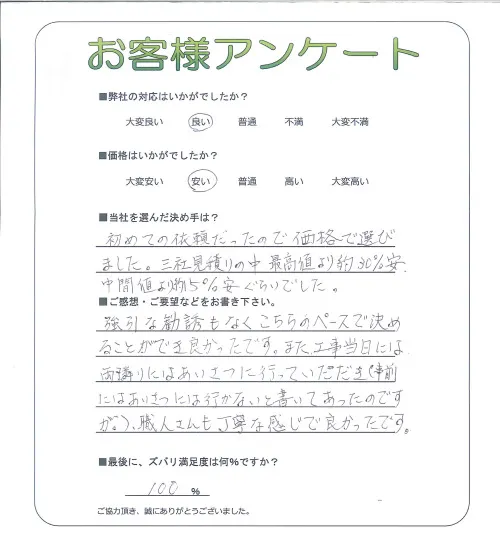 お客様アンケート
■弊社の対応はいかがでしたか？
大変良い 良い 普通 不満 大変不満
■価格はいかがでしたか？
大変安い 安い 普通 高い 大変高い
■当社を選んだ決め手は？
初めての依頼だったので価格で選び
ました。三社見積りの中 最高値より約30%安
中間値より約5%安ぐらいでした。
■ご感想・ご要望などをお書き下さい。
強引な勧誘もなくこちらのペースで決め
ることができ良かったです。また工事当日には
両隣りにはあいさつに行っていただき(事前
にはあいさつには行かないと書いてあったのです
が。)、職人さんも丁寧な感じで良かったです。
■最後に、ズバリ満足度は何%ですか？
100 %
ご協力頂き、誠にありがとうございました。